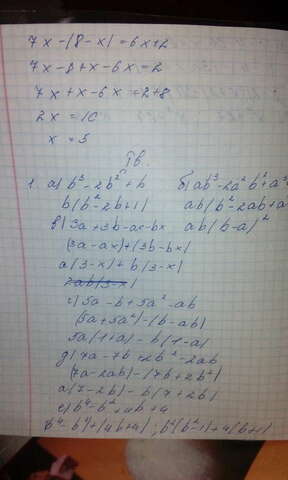 7x-(8-x)=6x+2
7x-8+x-6x=2
7x+x-6x=2+8
2x=10
x=5
Iв.
1. а) b³-2b²+b б) ab³-2a²b²+a³
b(b²-2b+1) ab(b²-2ab+a
в) 3a+3b-ax-bx ab(b-a)²
(3a-ax)+(3b-bx)
a(3-x)+b(3-x)
г) 5a-b+5a²-ab
(5a+5a²)-(b-ab)
5a(1+a)-b(1-a)
д) 7a-7b+2b²-2ab
(7a-2ab)-(7b+2b²)
a(7-2b)-b(7+2b)
е) b⁴-b²+4b+4
b²(b²-1)+4(b+1)